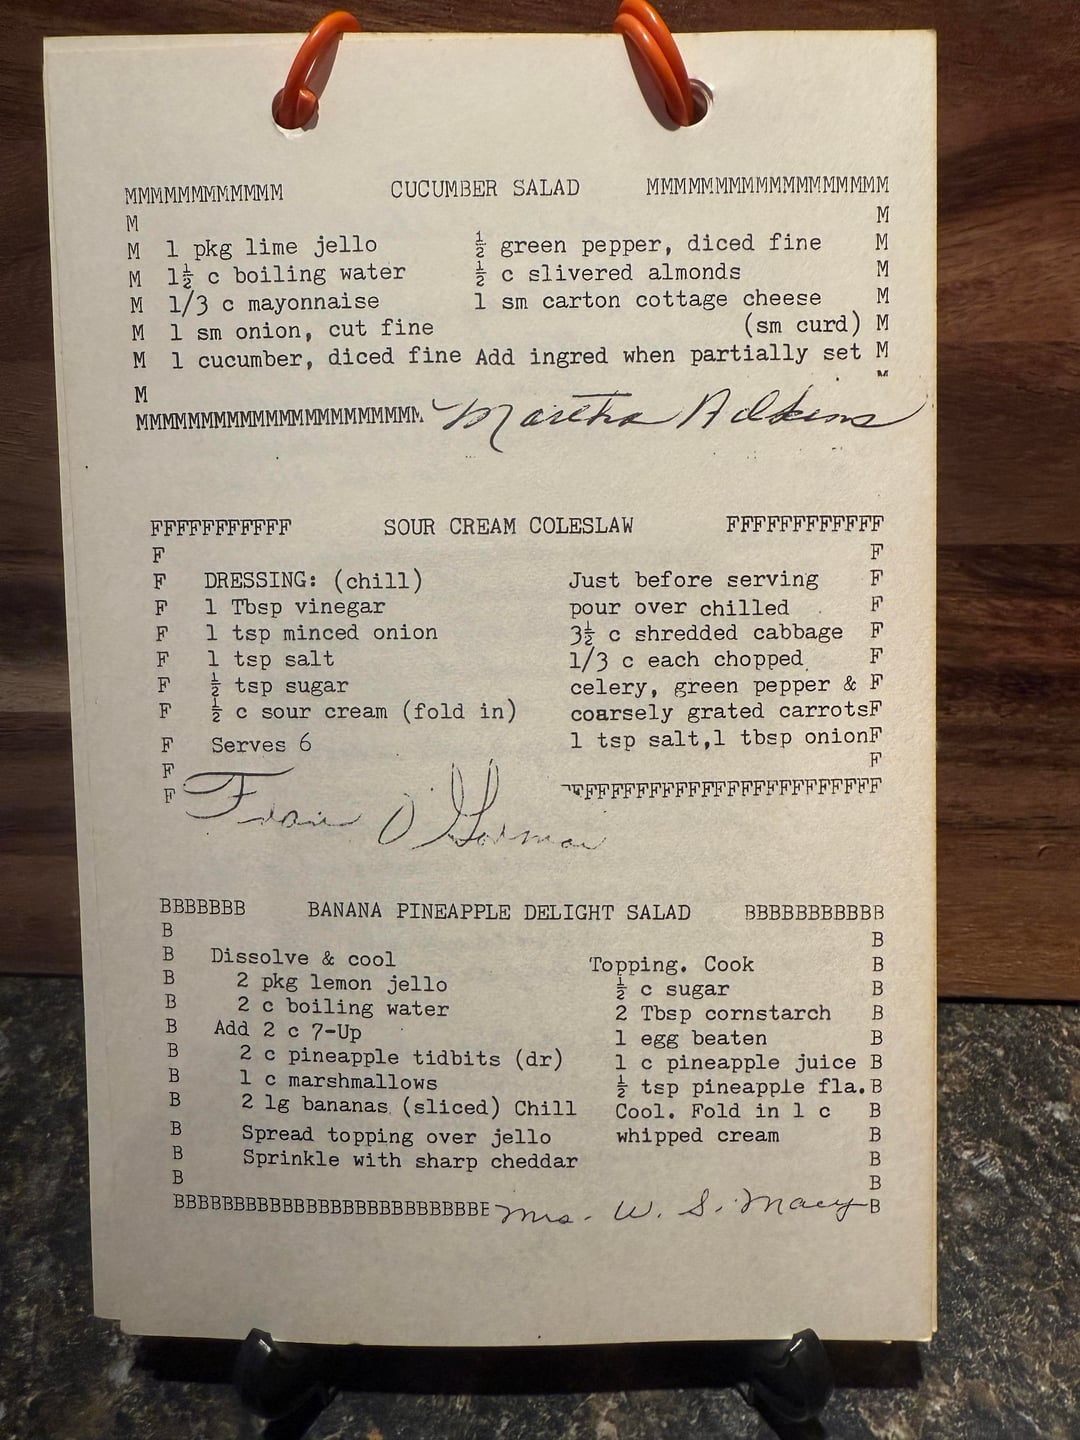 MMMMMMMMMMMM CUCUMBER SALAD MMMMMMMMMMMMMMMMMM
M M
M 1 pkg lime jello ½ green pepper, diced fine M
M 1½ c boiling water ½ c slivered almonds M
M 1/3 c mayonnaise 1 sm carton cottage cheese M
M 1 sm onion, cut fine (sm curd) M
M 1 cucumber, diced fine Add ingred when partially set M
M M
MMMMMMMMMMMMMMMMMMMMMM Martha Adkins
FFFFFFFFFFF SOUR CREAM COLESLAW FFFFFFFFFFFF
F F
F DRESSING: (chill) Just before serving F
F 1 Tbsp vinegar pour over chilled F
F 1 tsp minced onion 3½ c shredded cabbage F
F 1 tsp salt 1/3 c each chopped F
F ½ tsp sugar celery, green pepper & F
F ½ c sour cream (fold in) coarsely grated carrotsF
F Serves 6 1 tsp salt,1 tbsp onionF
F F
F FFFFFFFFFFFFFFFFFFFFFFFF
Fran O'Gorman
BBBBBBB BANANA PINEAPPLE DELIGHT SALAD BBBBBBBBBBB
B B
B Dissolve & cool Topping. Cook B
B 2 pkg lemon jello ½ c sugar B
B 2 c boiling water 2 Tbsp cornstarch B
B Add 2 c 7-Up 1 egg beaten B
B 2 c pineapple tidbits (dr) 1 c pineapple juice B
B 1 c marshmallows ½ tsp pineapple fla.B
B 2 lg bananas (sliced) Chill Cool. Fold in 1 c B
B Spread topping over jello whipped cream B
B Sprinkle with sharp cheddar B
B B
BBBBBBBBBBBBBBBBBBBBBBBBBB Mrs. W. S. Macy B